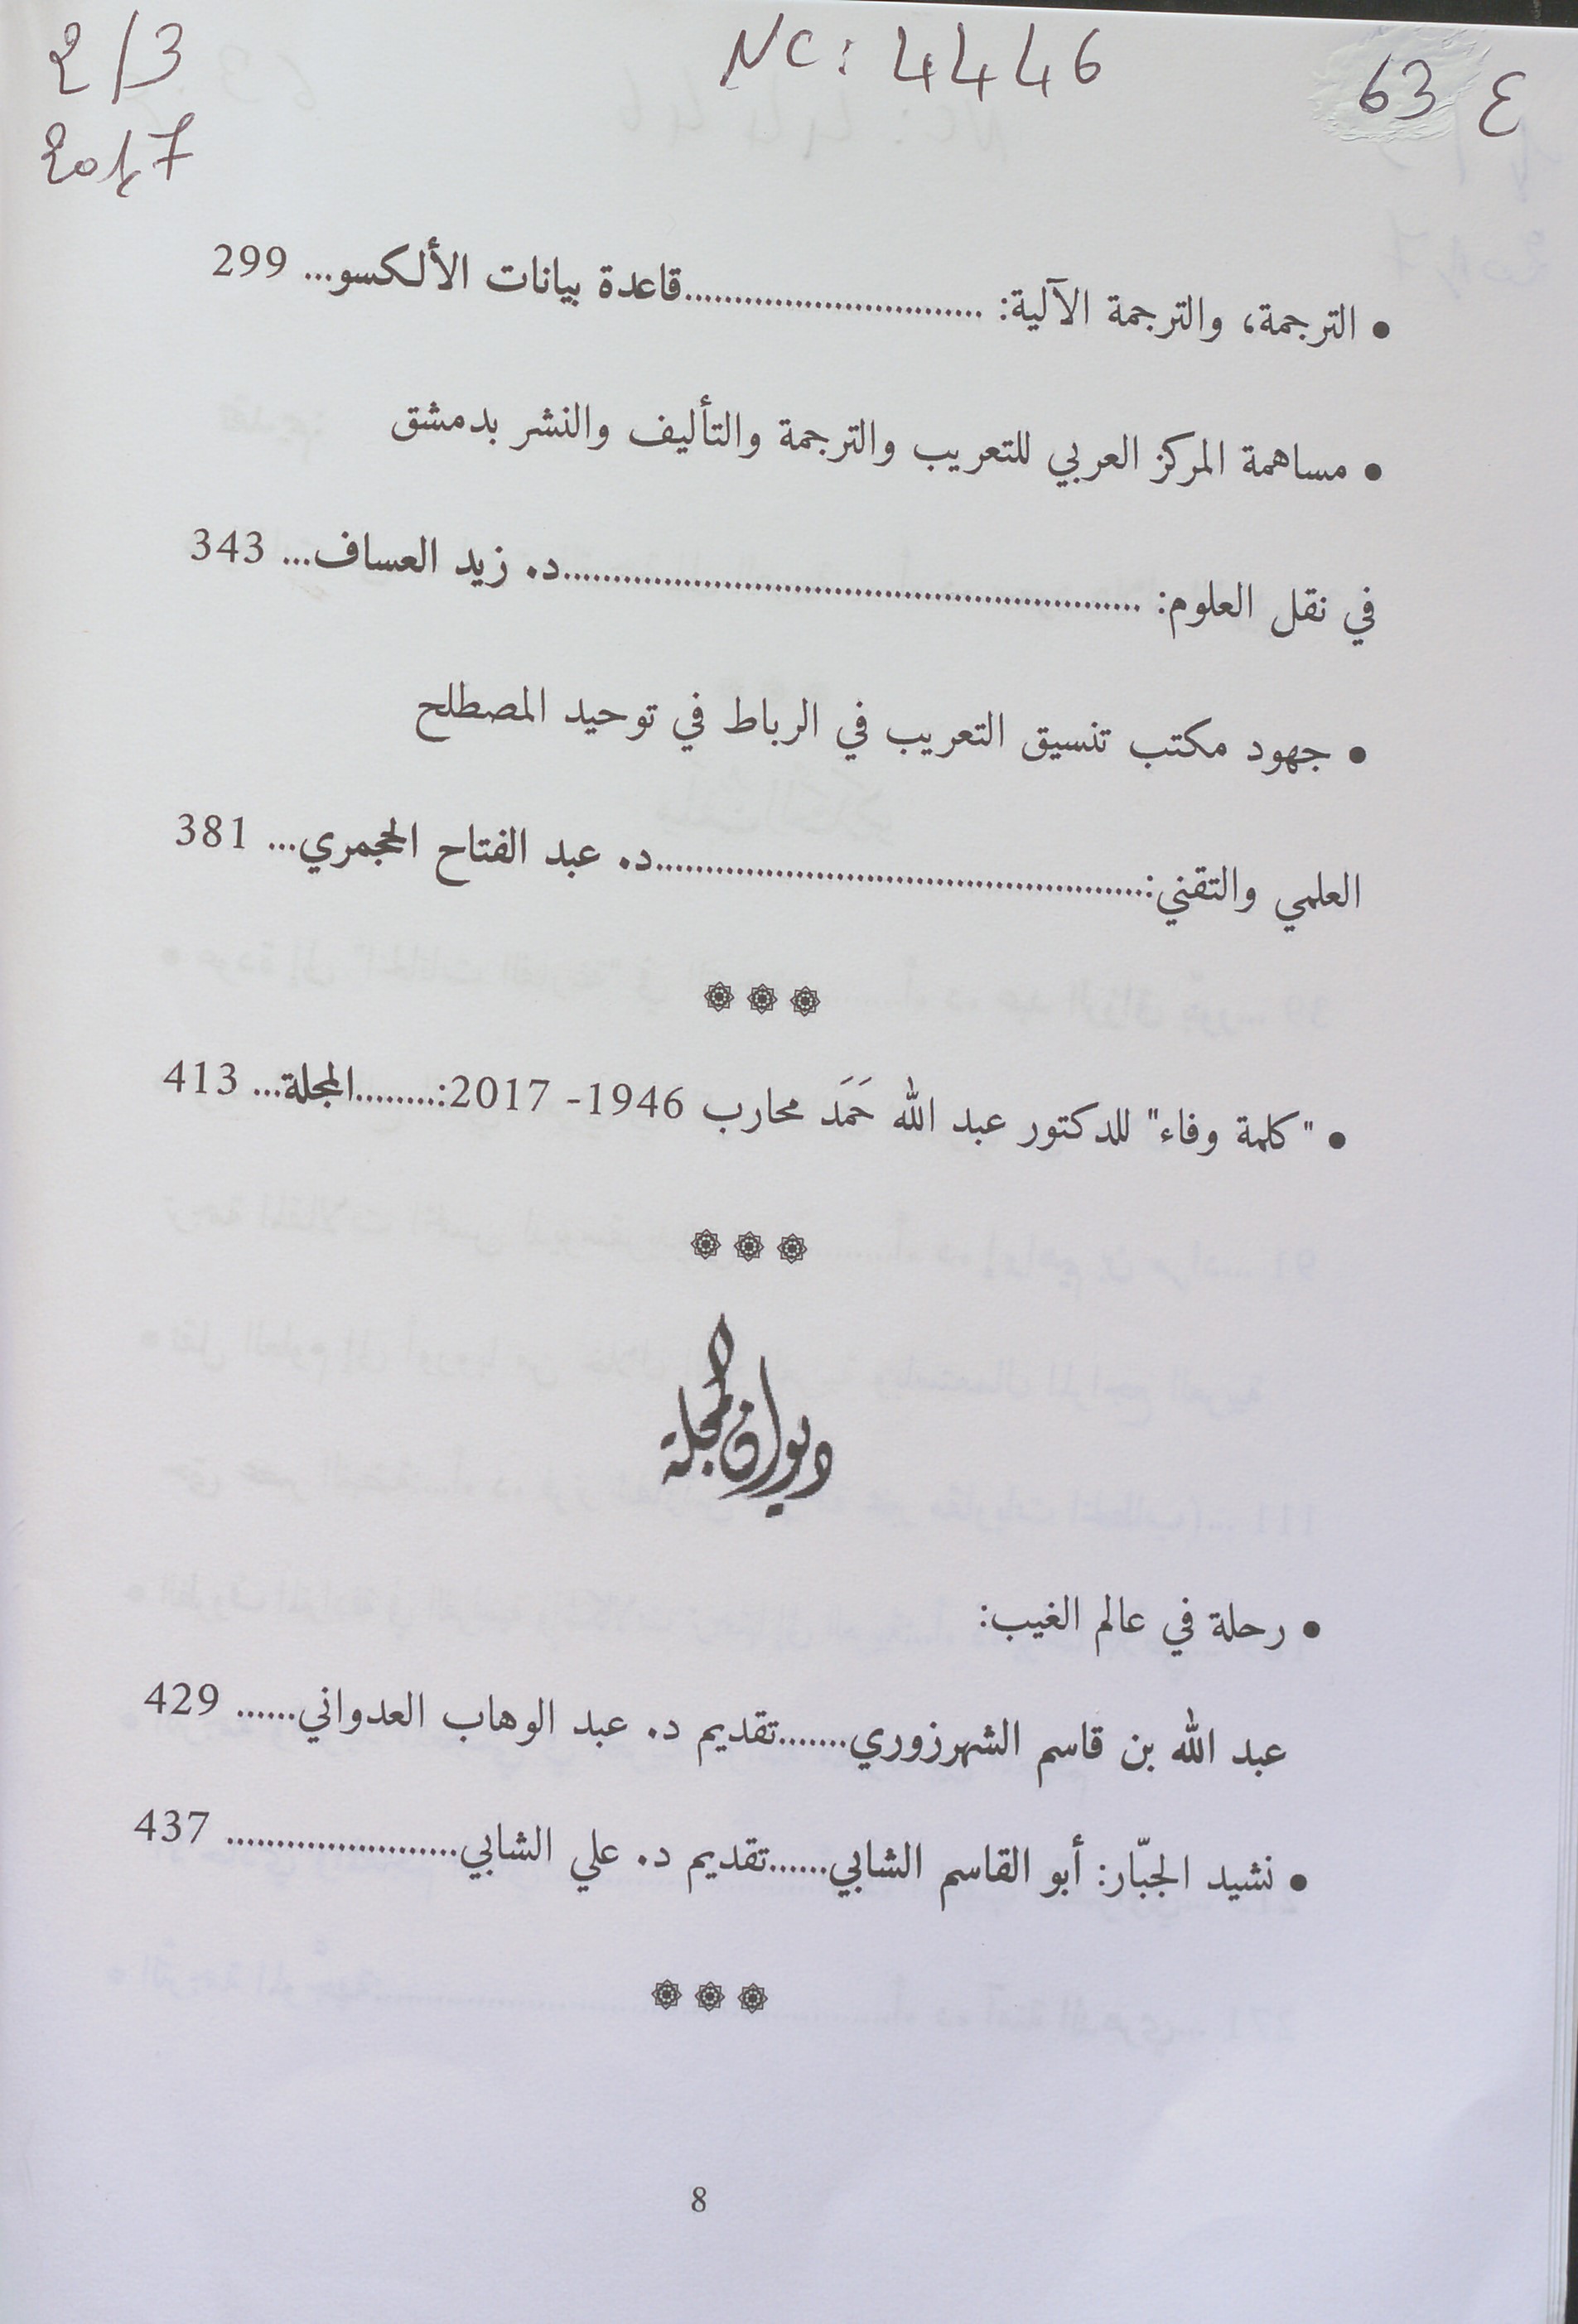 2/3
2017
NC: 4446
ع 63
• الترجمة، والترجمة الآلية: ..............................قاعدة بيانات الألكسو... 299
• مساهمة المركز العربي للتعريب والترجمة والتأليف والنشر بدمشق
في نقل العلوم: ..........................................................د. زيد العساف... 343
• جهود مكتب تنسيق التعريب في الرباط في توحيد المصطلح
العلمي والتقني:.................................................د. عبد الفتاح الحجمري... 381
• "كلمة وفاء" للدكتور عبد الله حَمَد محارب 1946- 2017:........المجلة... 413
ديوان المجلة
• رحلة في عالم الغيب:
عبد الله بن قاسم الشهرزوري.......تقديم د. عبد الوهاب العدواني...... 429
• نشيد الجبّار: أبو القاسم الشابي......تقديم د. علي الشابي....................... 437
8